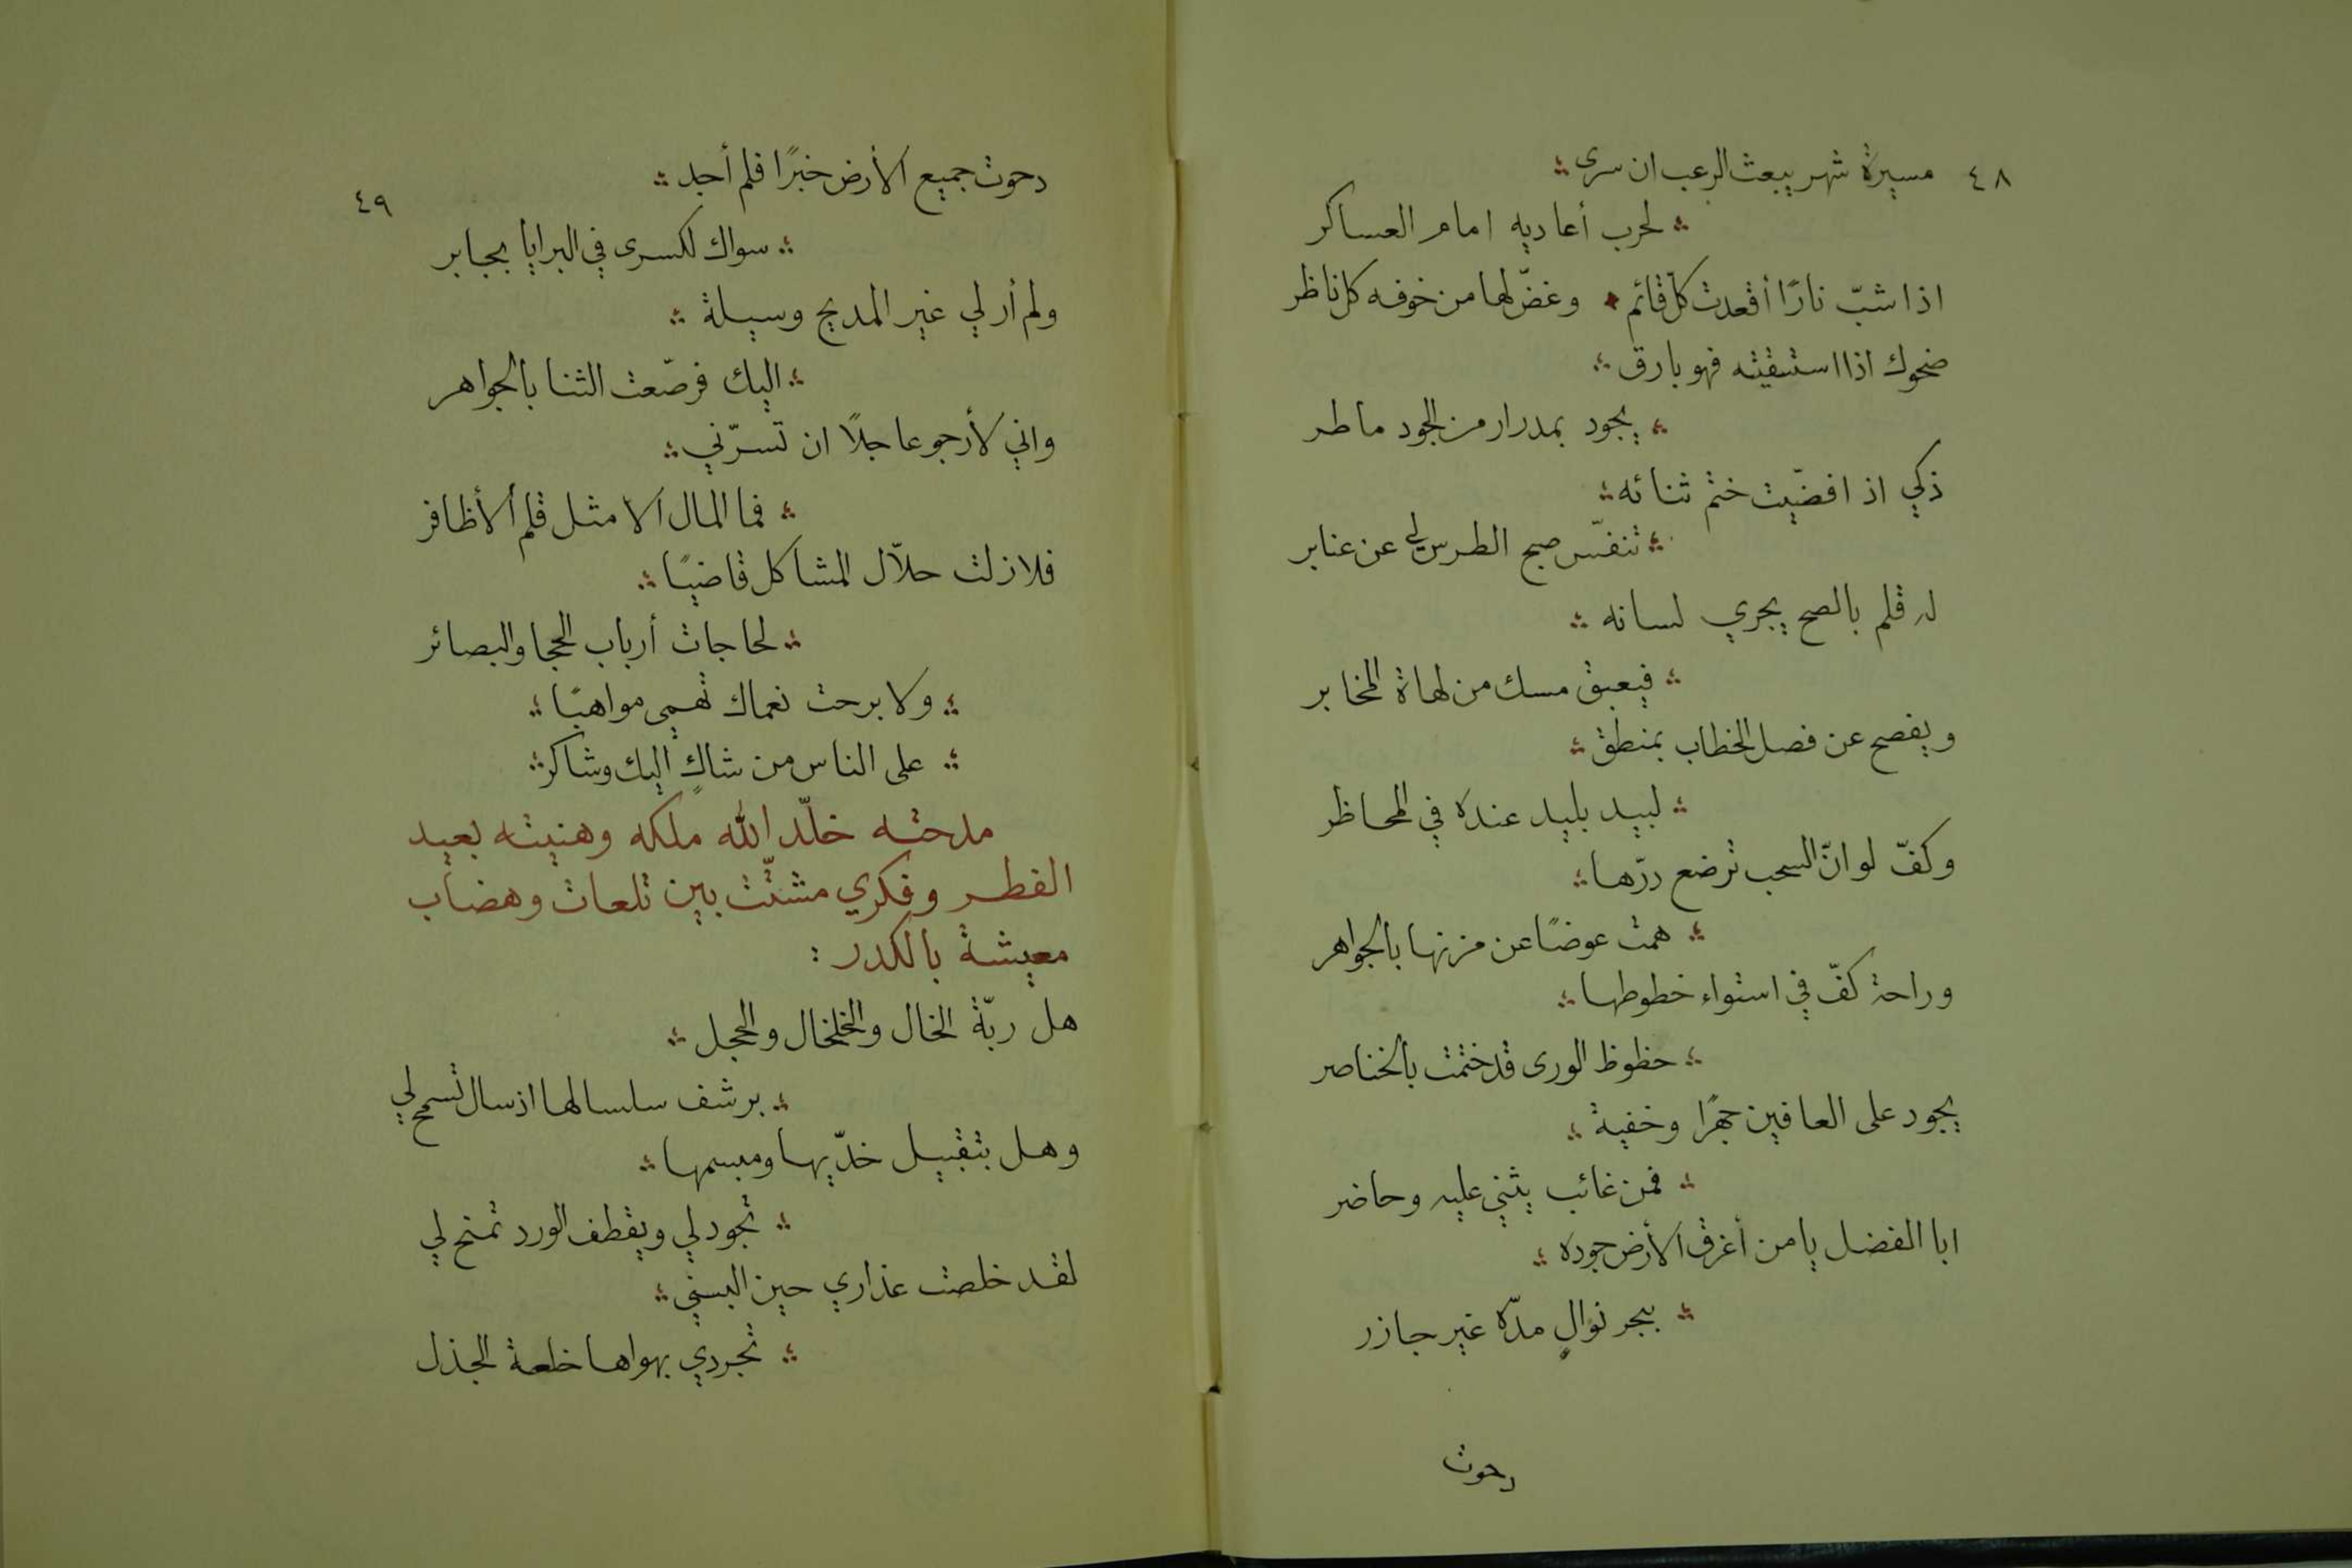 ٤٨
مسيرة شهر يبعث الرعب ان سرى
لحرب أعاديه امام العساكر
اذا شبّ نارًا أقعدت كلّ قائم وغضّ لها من خوفه كل ناظر
ضحوك اذا استسقيته فهو بارق
يجود بمدرار من الجود ماطر
ذكي اذ افضّيت ختم ثنائه
تنفّس صبح الطرس لي عن عنابر
له قلم بالصح يجري لسانه
فيعبق مسك من لهاة المخابر
ويفصح عن فصل الخطاب بمنطق
لبيد بليد عنده في المحاظر
وكفّ لو انّ السحب ترضع درّها
همت عوضًا عن مزنها بالجواهر
وراحة كفّ في استواء خطوطها
حظوظ الورى قد ختمت بالخناصر
يجود على العافين جهرًا وخفية
فمن غائب يثني عليه وحاضر
ابا الفضل يا من أغرق الأرض جوده
ببحر نوالٍ مدّه غير جازر
رحوت
٤٩
رحوت جميع الأرض خبرًا فلم أجد
سواك لكسرى في البرايا بجابر
ولم أر لي غير المديح وسيلة
اليك فرصّعت الثنا بالجواهر
واني لأرجو عاجلًا ان تسرّني
فما المال الا مثل قلم الأظافر
فلا زلت حلاّل المشاكل قاضيًا
لحاجات أرباب الحجا والبصائر
ولا برحت نعماك تهمي مواهبًا
على الناس من شاكٍ اليك وشاكر
مدحته خلّد الله ملكه وهنيته بعيد
الفطر وفكري مشتّت بين تلعات وهضاب
معيشة بالكدر :
هل ربّة الخال والخلخال والحجل
برشف سلسالها اذ سال تسمح لي
وهل بتقبيل خدّيها ومبسمها
تجود لي ويقطف الورد تمنح لي
لقد خلصت عذاري حين البسني
تجردي بهواها خلعة الجذل